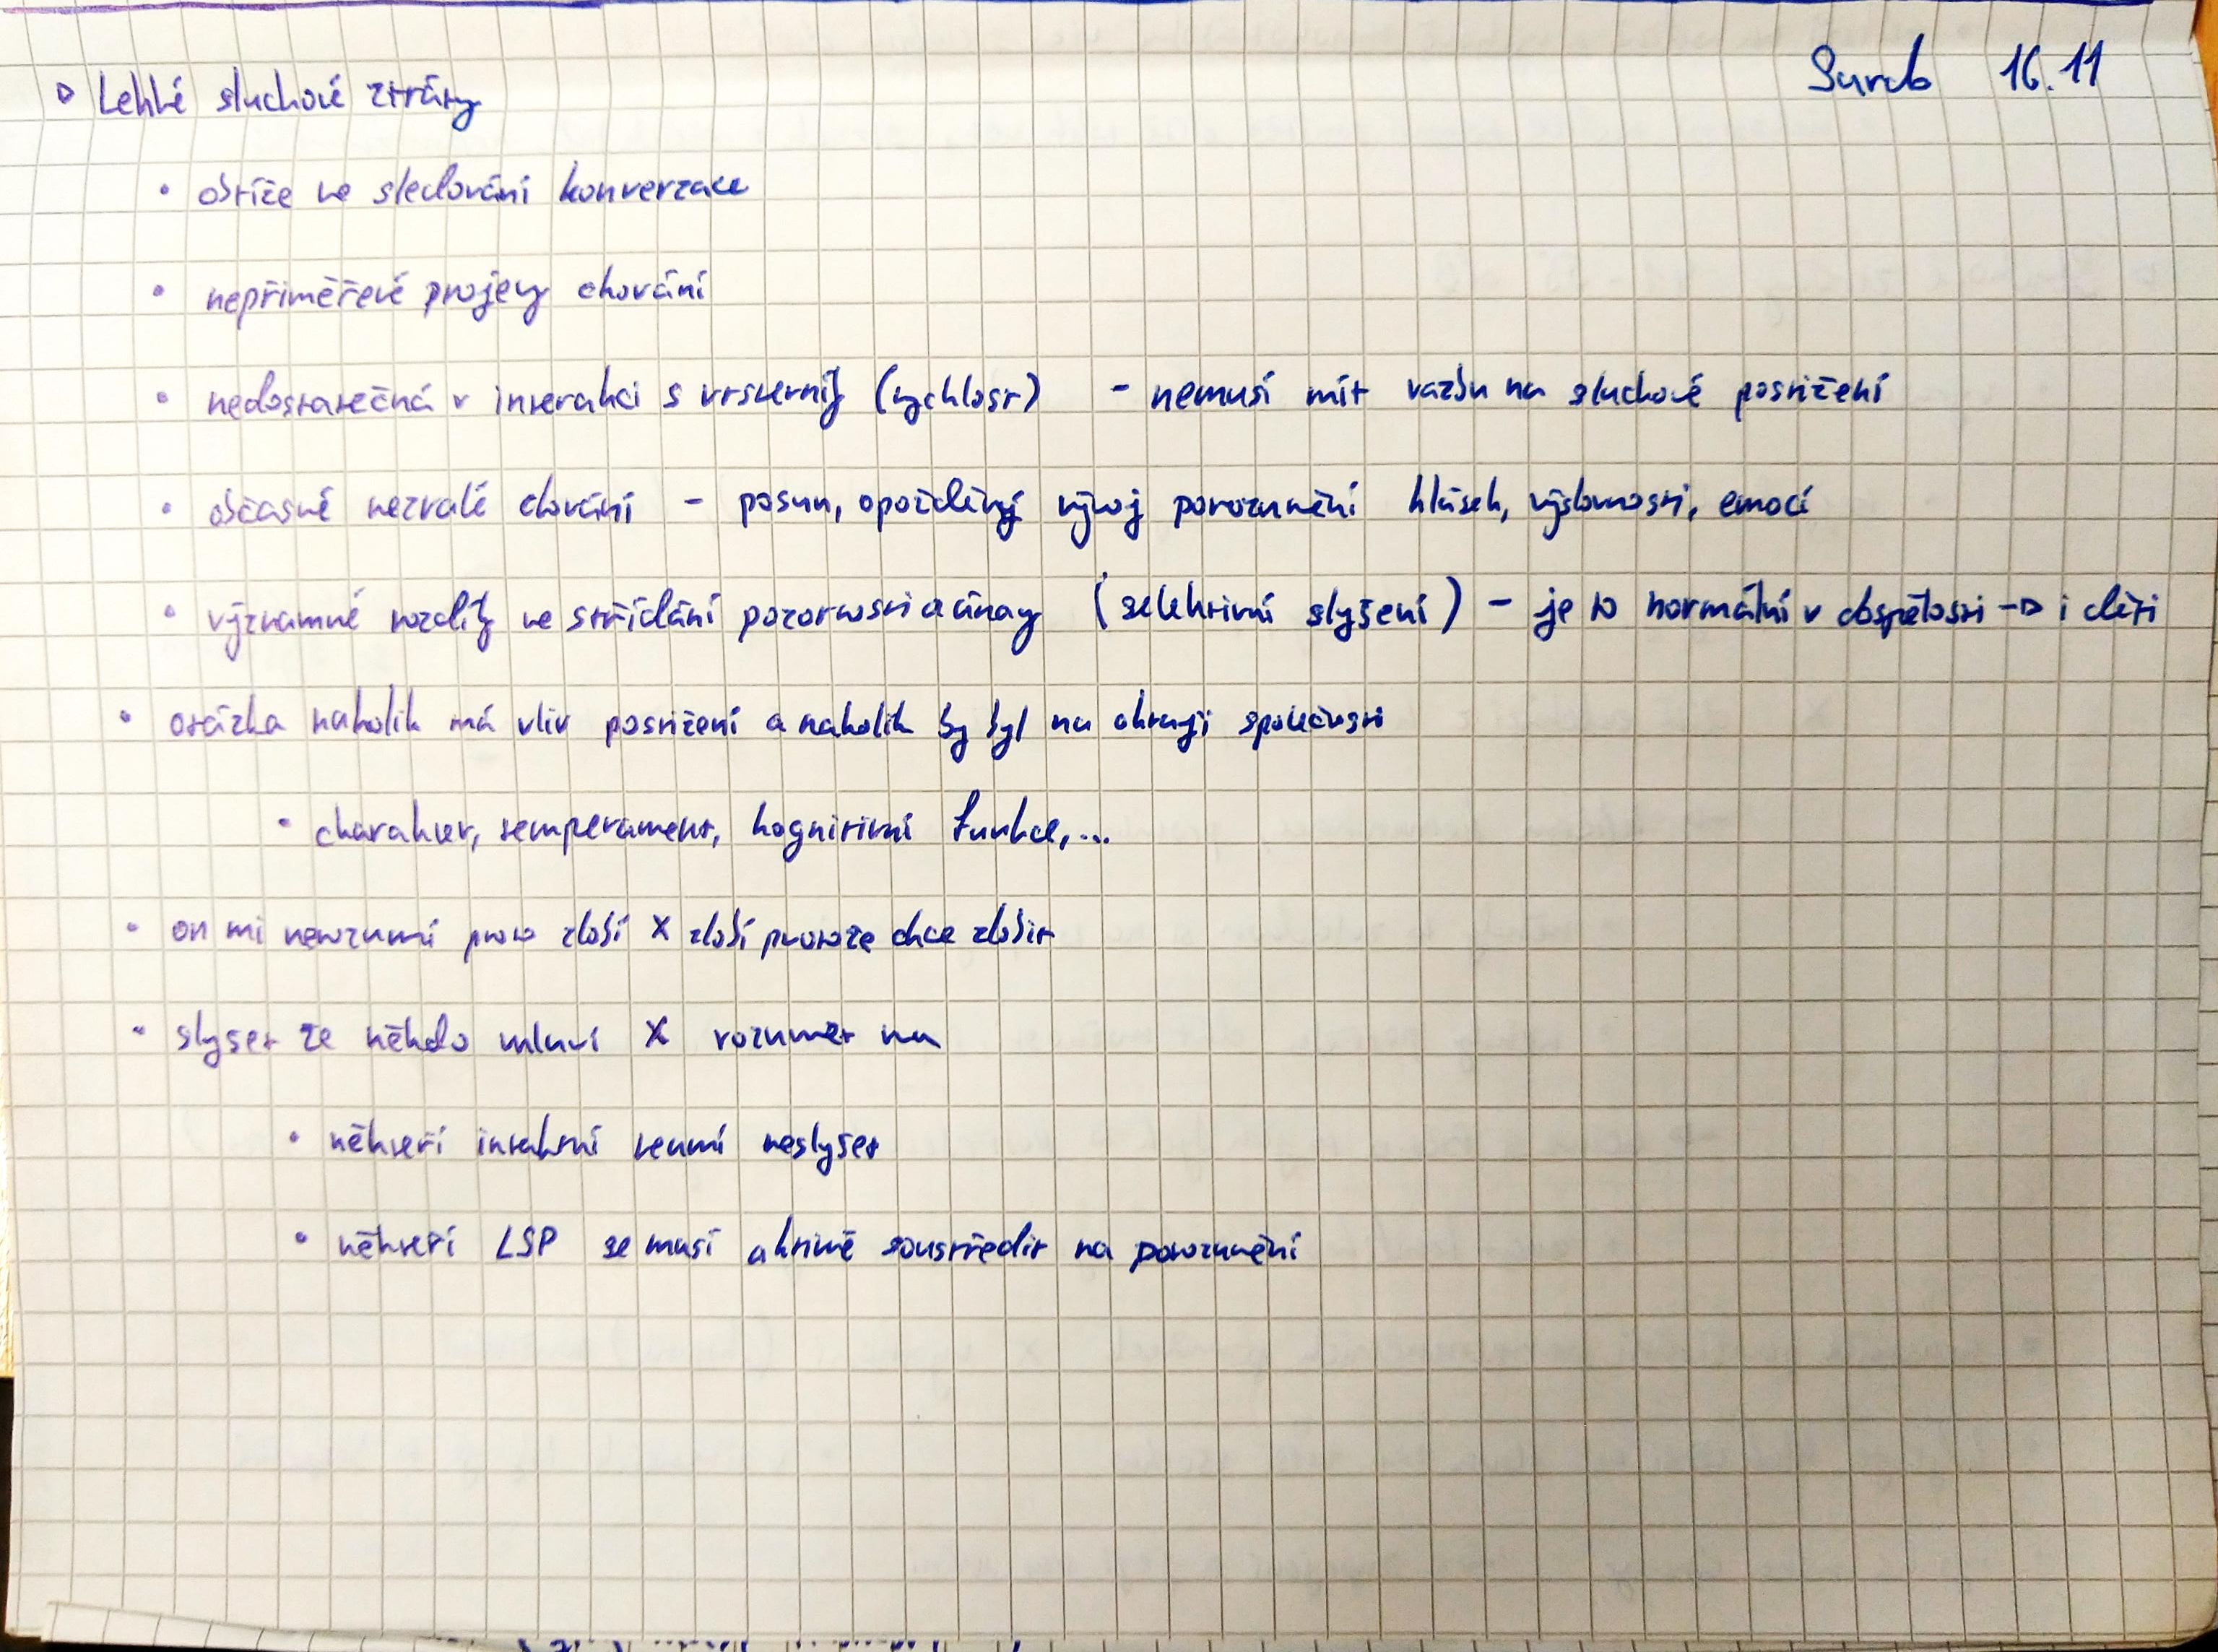 Surdo 16.11
▷ Lehké sluchové ztráty
• obtíže ve sledování konverzace
• nepřiměřevé projevy chování
• nedostatečná v interakci s vrstevníky (rychlost) - nemusí mít vazbu na sluchové postižení
• občasné nezralé chování - posun, opožděný vývoj porozumění hlásek, výslovnosti, emocí
• významné rozdíly ve střídání pozornosti a únavy (selektivní slyšení) - je to normální v dospělosti -▷ i děti
• otázka nakolik má vliv postižení a nakolik by byl na okraji společnosti
• charakter, temperament, kognitivní funkce,...
• on mi nerozumí proto zlobí X zlobí protože chce zlobit
• slyšet že někdo mluví X rozumět mu
• někteří intaktní neumí neslyšet
• někteří LSP se musí aktivně soustředit na porozumění